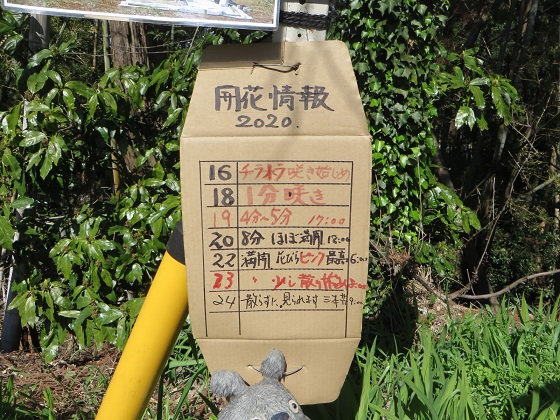 開花情報
2020.
16 チラホラ咲き始め
18 1分咲き
19 4分~5分 17:00
20 8分 ほぼ満開 12:00
22 満開 花びらピンク最高 6:00
23 少し散り始め
24 散らずに見られます 9:00